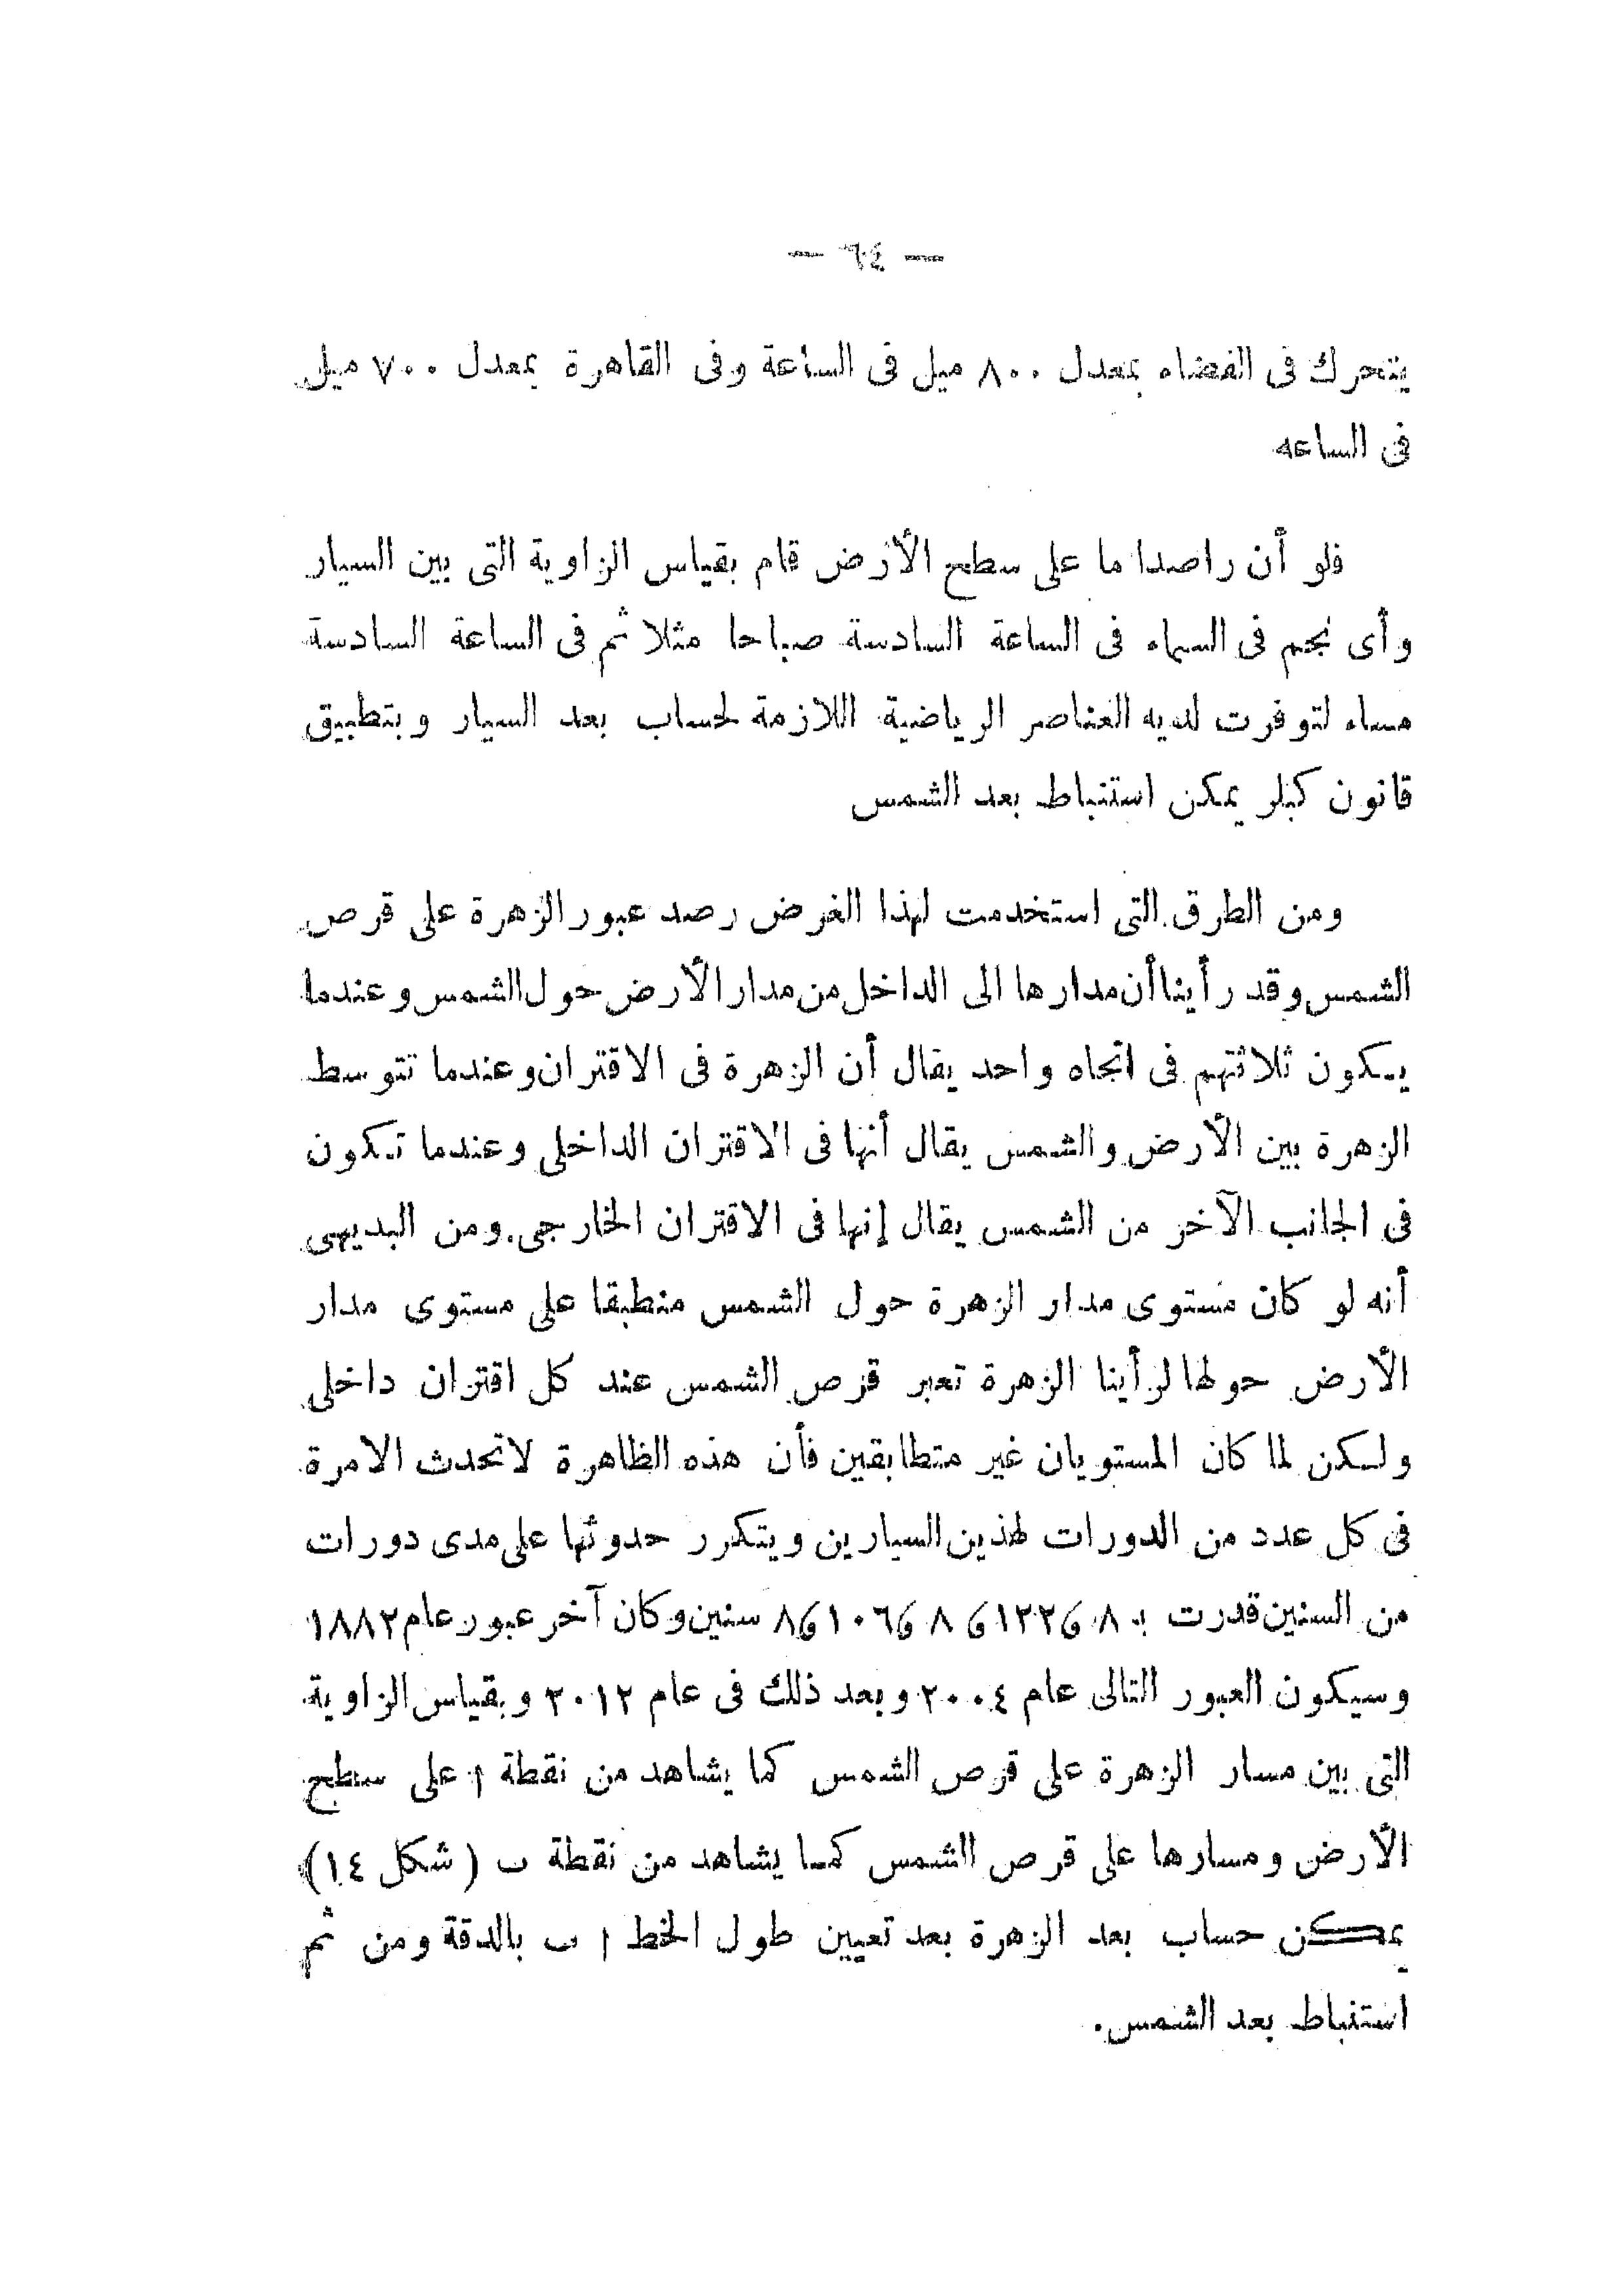 — ٦٤ —
يتحرك فى الفضاء بمعدل ٨٠٠ ميل فى الساعة وفى القاهرة بمعدل ٧٠٠ ميل
فى الساعه
فلو أن راصدا ما على سطح الأرض قام بقياس الزاوية التى بين السيار
وأى نجم فى السماء فى الساعة السادسة صباحا مثلا ثم فى الساعة السادسة
مساء لتوفرت لديه العناصر الرياضية اللازمة لحساب بعد السيار وبتطبيق
قانون كبلر يمكن استنباط بعد الشمس
ومن الطرق التى استخدمت لهذا الغرض رصد عبور الزهرة على قرص
الشمس وقد رأينا أن مدارها الى الداخل من مدار الأرض حول الشمس وعندما
يكون ثلاثتهم فى اتجاه واحد يقال أن الزهرة فى الاقتران وعندما تتوسط
الزهرة بين الأرض والشمس يقال أنها فى الاقتران الداخلى وعندما تكون
فى الجانب الآخر من الشمس يقال إنها فى الاقتران الخارجى. ومن البديهى
أنه لو كان مستوى مدار الزهرة حول الشمس منطبقا على مستوى مدار
الأرض حولها لرأينا الزهرة تعبر قرص الشمس عند كل اقتران داخلى
ولكن لما كان المستويان غير متطابقين فأن هذه الظاهرة لا تحدث الا مرة
فى كل عدد من الدورات لهذين السيارين ويتكرر حدوثها على مدى دورات
من السنين قدرت بـ ٨ و١٢٢ و ٨ و١٠٦ و٨ سنين وكان آخر عبور عام ١٨٨٢
وسيكون العبور التالى عام ٢٠٠٤ وبعد ذلك فى عام ٢٠١٢ وبقياس الزاوية
التى بين مسار الزهرة على قرص الشمس كما يشاهد من نقطة ا على سطح
الأرض ومسارها على قرص الشمس كما يشاهد من نقطة ب (شكل ١٤)
يمكن حساب بعد الزهرة بعد تعيين طول الخط ا ب بالدقة ومن ثم
استنباط بعد الشمس.